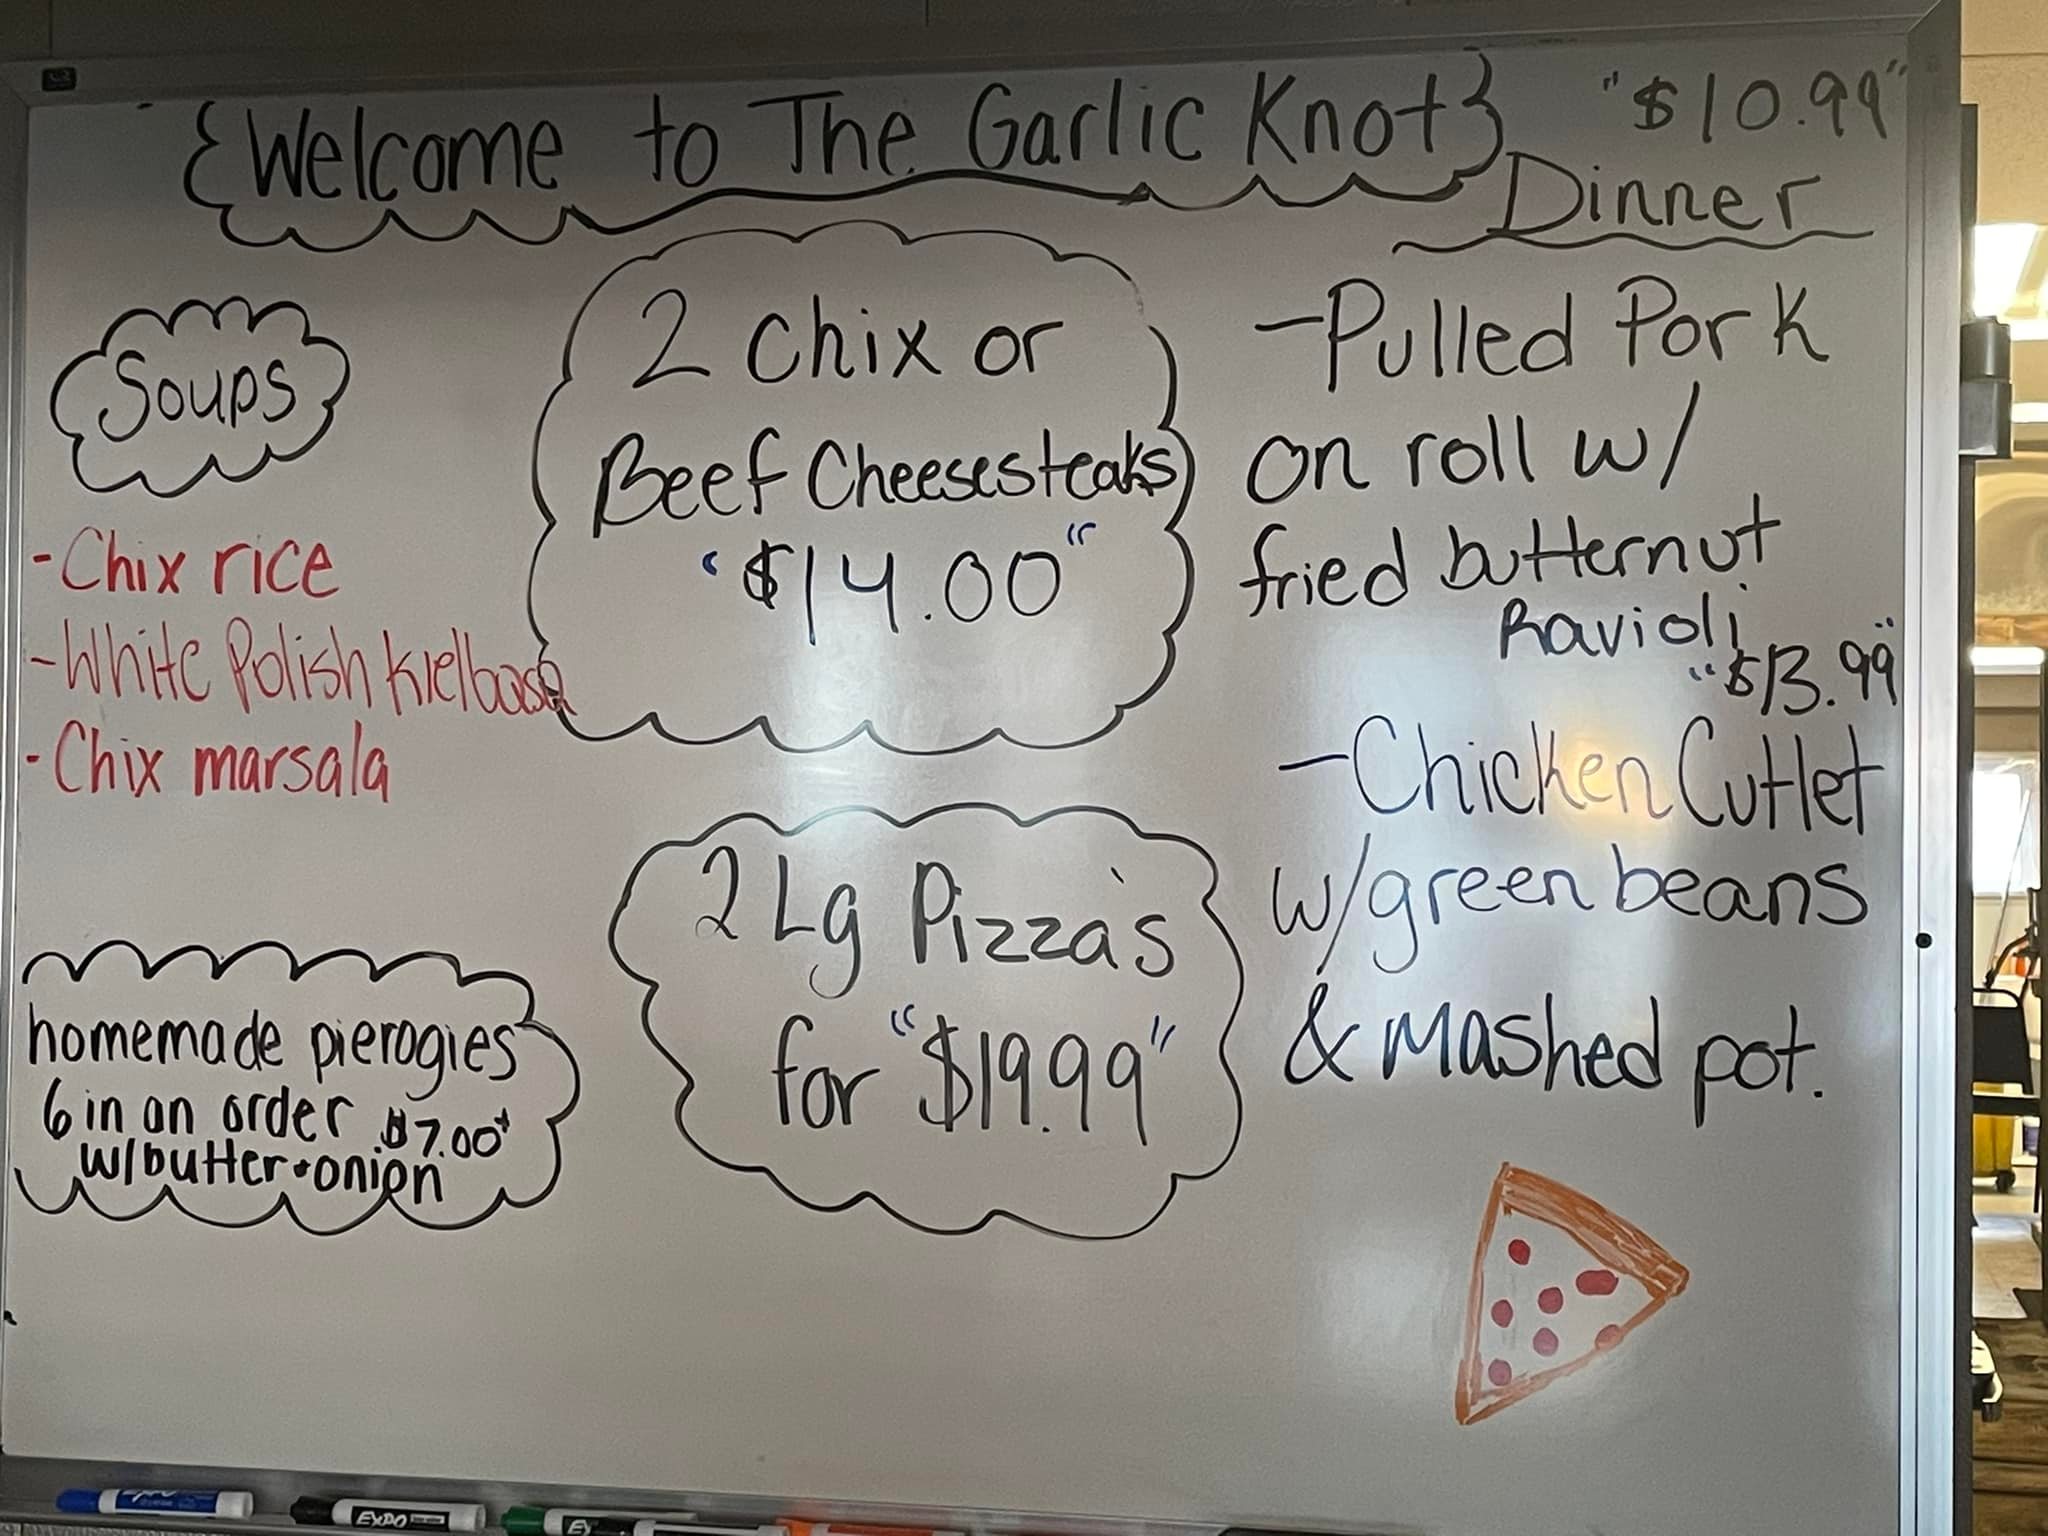 {Welcome to The Garlic Knot}
Soups
-Chix rice
-White Polish Kielbasa
-Chix marsala
homemade pierogies
6 in an order $7.00+
w/butter+onion
2 Chix or
Beef Cheesesteaks
"$14.00"
2 Lg Pizza's
for "$19.99"
"$10.99"
Dinner
-Pulled Pork
on roll w/
fried butternut
Ravioli
"$13.99"
-Chicken Cutlet
w/green beans
& Mashed pot.
EXPO